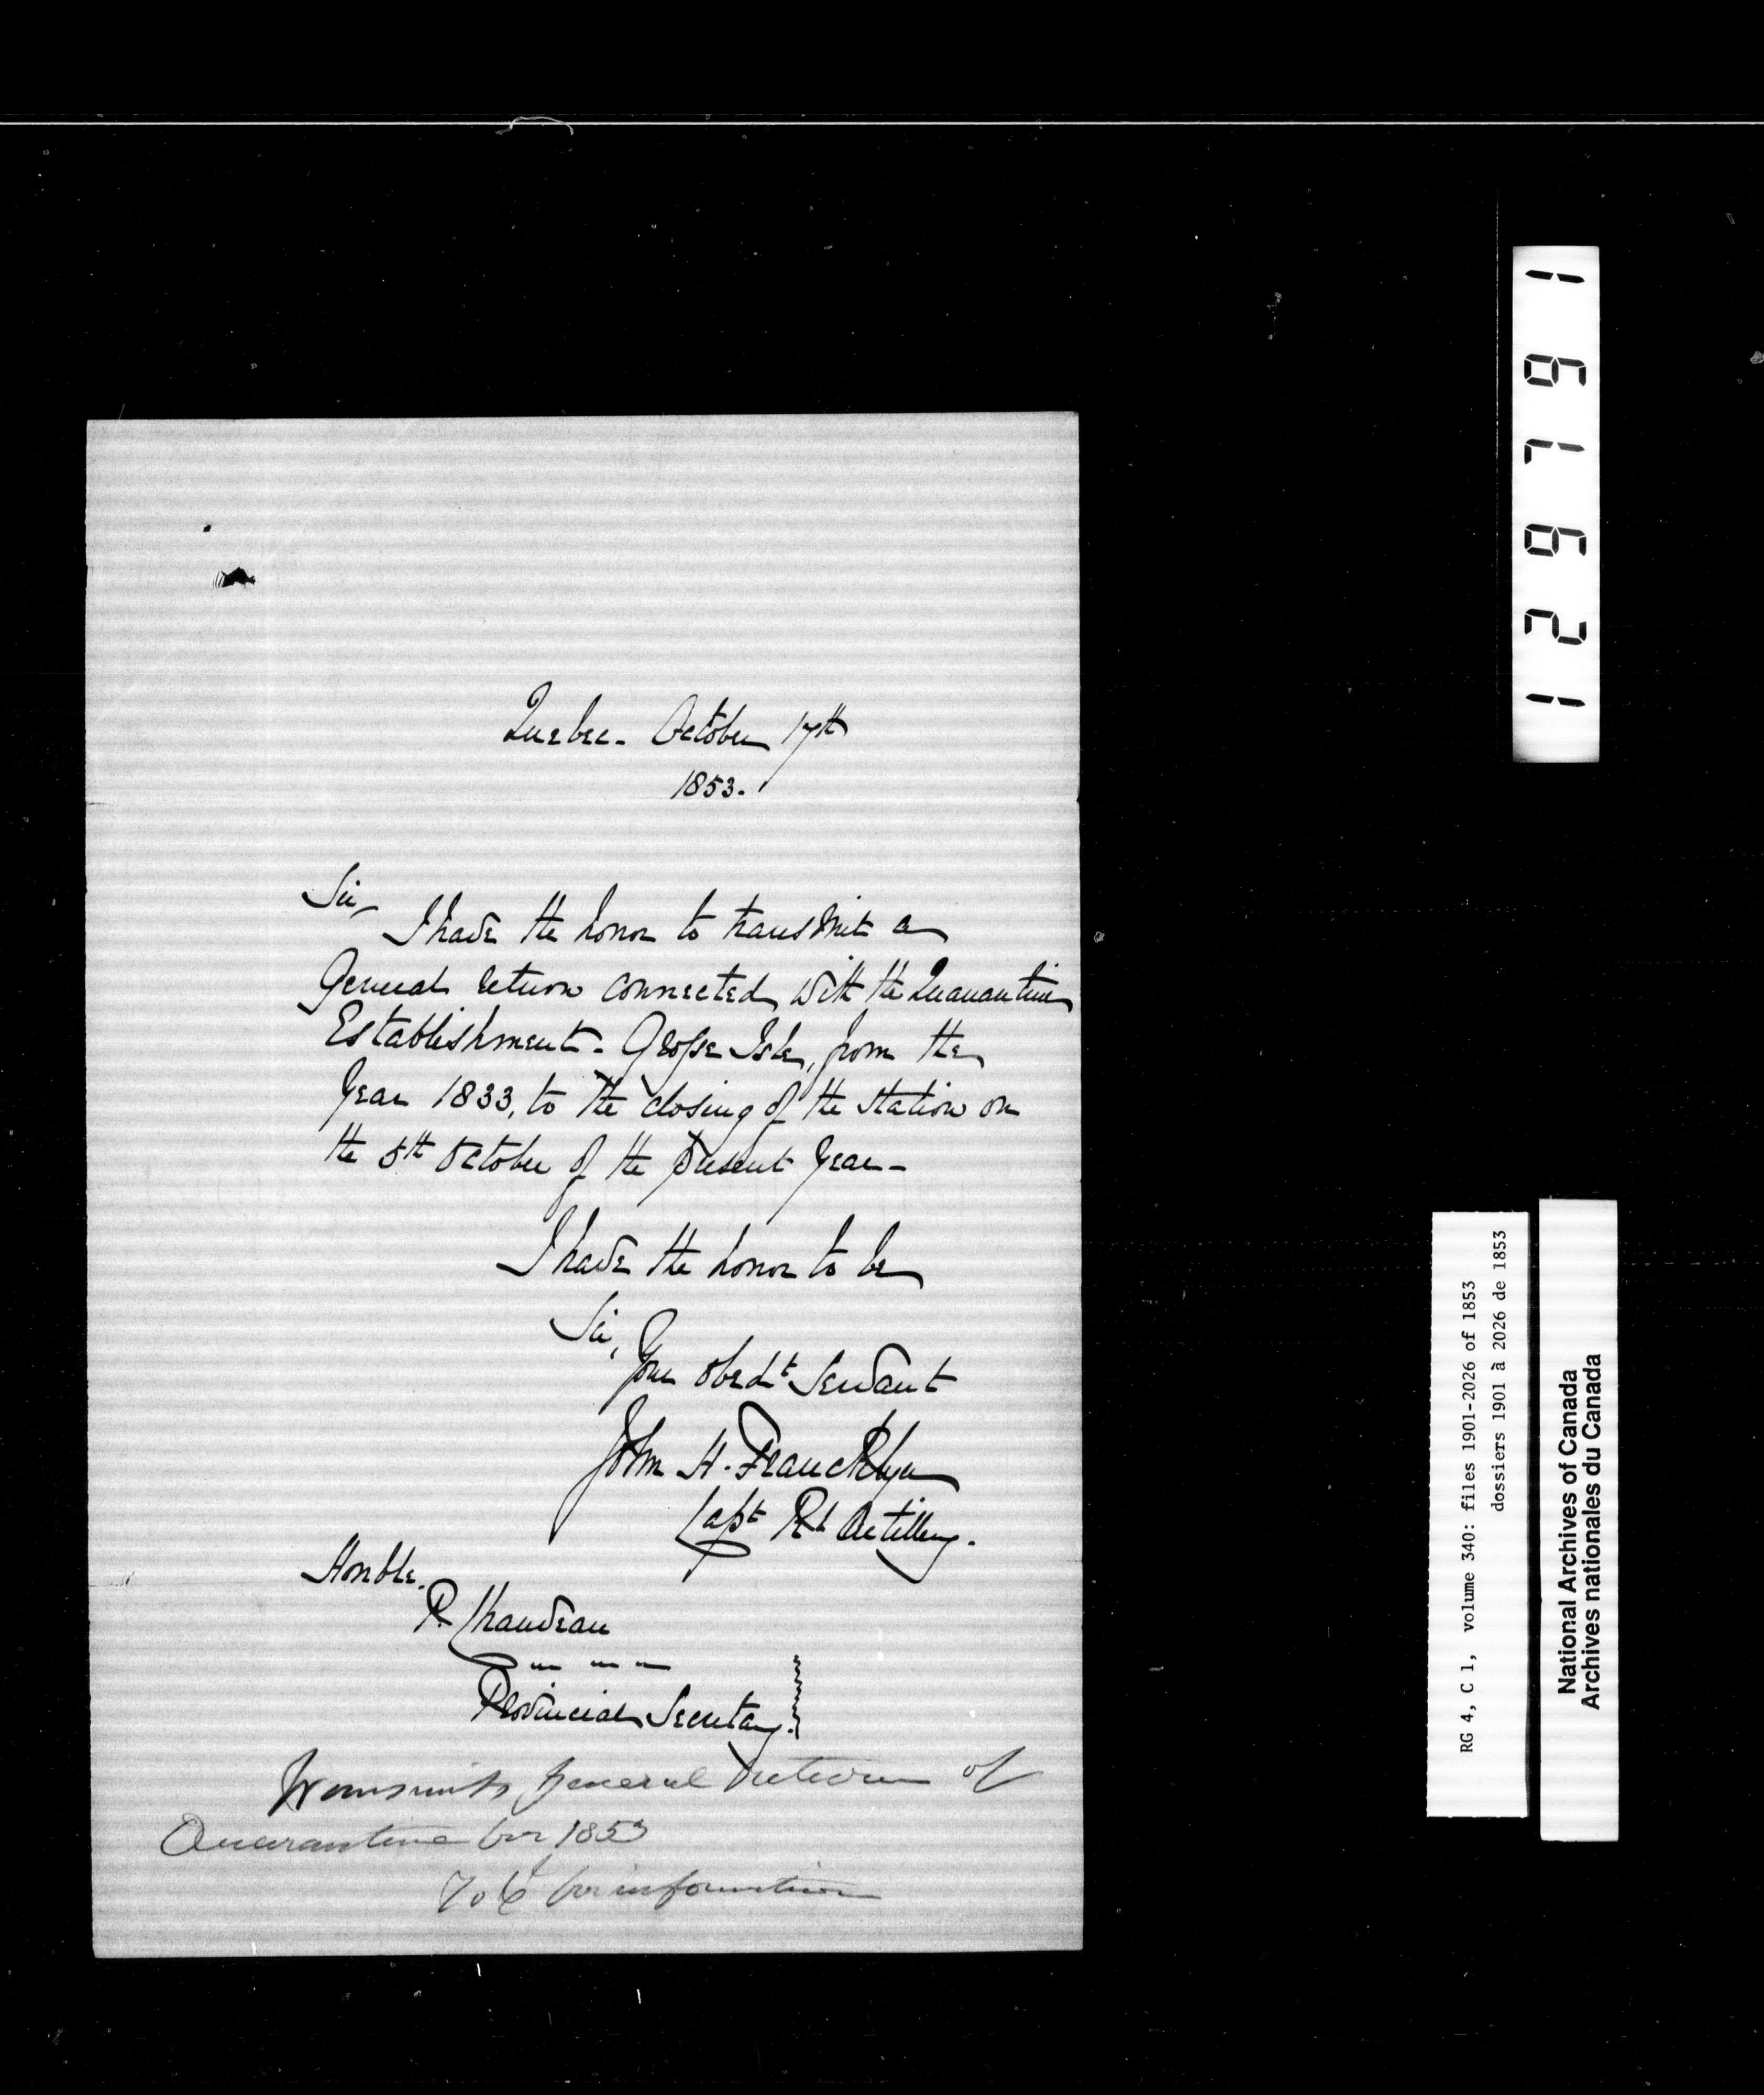 Quebec - October 17th
1853.
Sir,
I have the honor to transmit a
General return connected with the Quarantine
Establishment - Grosse Isle, from the
Year 1833, to the closing of the station on
the 5th October of the present Year -
I have the honor to be
Sir,
Your obedt Servant
John H. Francklyn
Capt Rl Artillery.
Honble.
P. Chauveau
Provincial Secretary.
Transmits General Return of
Quarantine for 1853
for information
1 6 7 6 2 1
RG 4, C 1, volume 340: files 1901-2026 of 1853
dossiers 1901 à 2026 de 1853
National Archives of Canada
Archives nationales du Canada